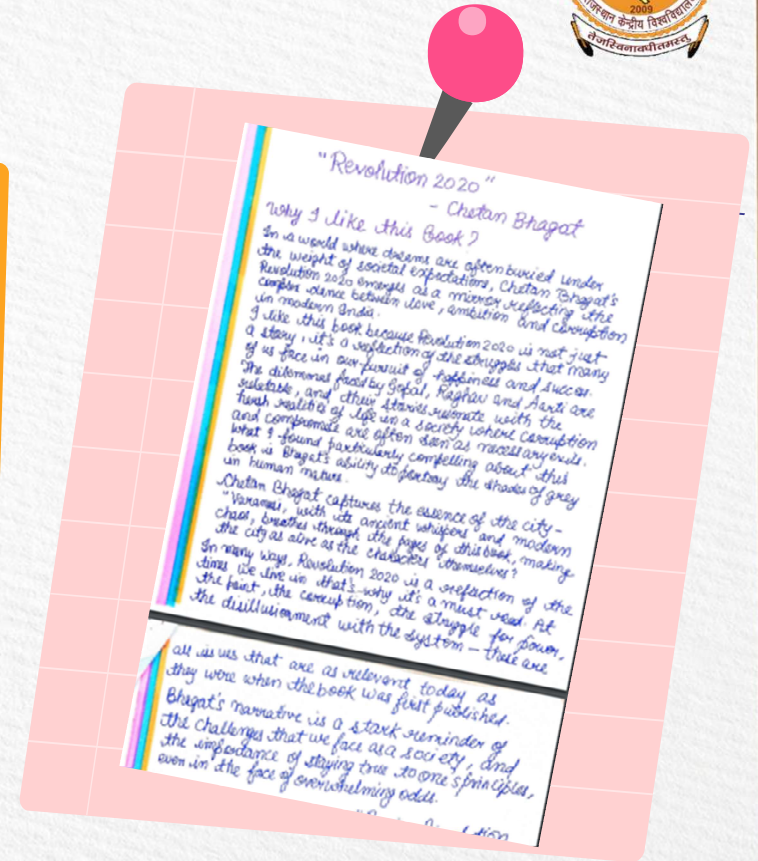 2009
राजस्थान केन्द्रीय विश्वविद्यालय
तेजस्विनावधीतमस्तु
"Revolution 2020"
- Chetan Bhagat
Why I like this Book?
In a world where dreams are often buried under
the weight of societal expectations, Chetan Bhagat's
Revolution 2020 emerges as a mirror reflecting the
complex dance between love, ambition and corruption
in modern India.
I like this book because Revolution 2020 is not just
a story, it's a reflection of the struggles that many
of us face in our pursuit of happiness and success.
The dilemmas faced by Gopal, Raghav and Aarti are
relatable, and their stories resonate with the
harsh realities of life in a society where corruption
and compromise are often seen as necessary evils.
What I found particularly compelling about this
book is Bhagat's ability to portray the shades of grey
in human nature.
Chetan Bhagat captures the essence of the city -
"Varanasi, with its ancient whispers and modern
chaos, breathes through the pages of this book, making
the city as alive as the characters themselves?
In many ways, Revolution 2020 is a reflection of the
times we live in that's why it's a must read. At
the point, the corruption, the struggle for power,
the disillusionment with the system — these are
all issues that are as relevant today as
they were when the book was first published.
Bhagat's narrative is a stark reminder of
the challenges that we face as a society, and
the importance of staying true to one's principles,
even in the face of overwhelming odds.